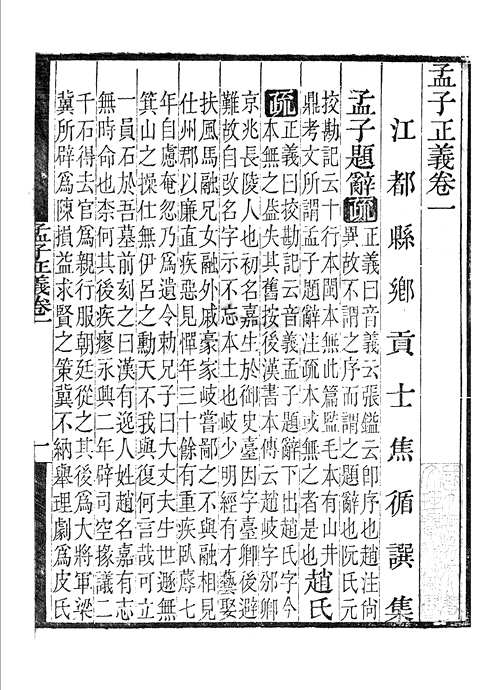 孟子正義卷一
江都縣鄉貢士焦循譔集
孟子題辭疏
正義曰音義云張鎰云卽序也趙注尙
異故不謂之序而謂之題辭也阮氏元
挍勘記云十行本閩本無此篇監毛本有山井
鼎考文所謂孟子題辭注疏本或無之者是也
趙氏
疏
正義曰挍勘記云音義孟子題辭下出趙氏字今
本無之葢失其舊按後漢書本傳云趙岐字邠卿
京兆長陵人也初名嘉生於御史臺因字臺卿後避
難故自改名字示不忘本土也岐少明經有才藝娶
扶風馬融兄女融外戚豪家岐嘗鄙之不與融相見
仕州郡以廉直疾惡見憚年三十餘有重疾臥蓐七
年自慮奄忽乃爲遺令敕兄子曰大丈夫生世遯無
箕山之操仕無伊呂之勳天不我與復何言哉可立
一員石於吾墓前刻之曰漢有逸人姓趙名嘉有志
無時命也柰何其後疾瘳永興二年辟司空掾議二
千石得去官爲親行服朝廷從之其後爲大將軍梁
冀所辟爲陳損益求賢之策冀不納舉理劇爲皮氏
孟子正義卷一
一